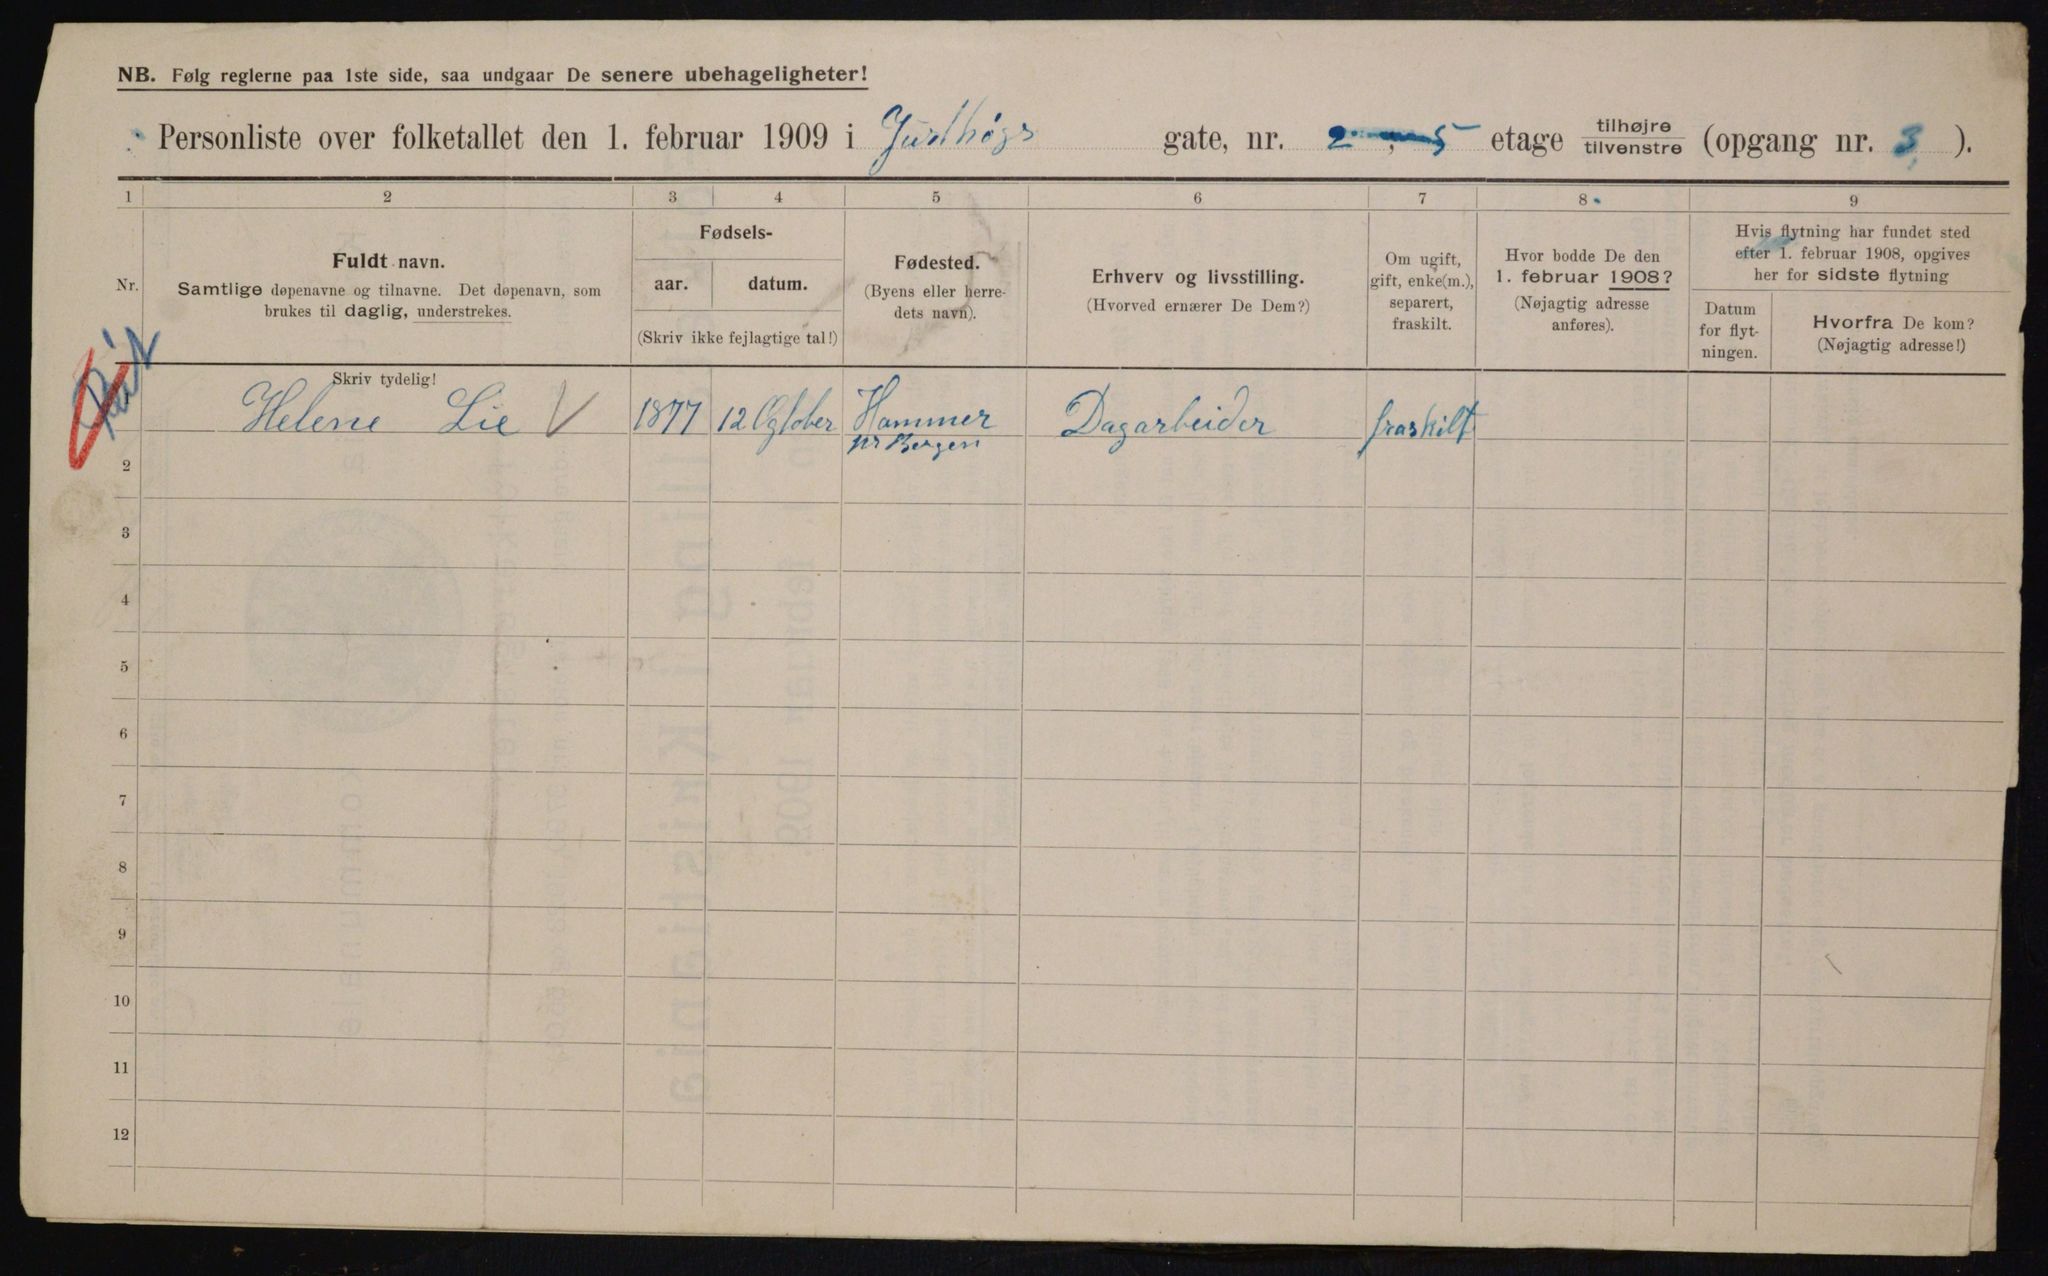 NB. Følg reglerne paa 1ste side, saa undgaar De senere ubehageligheter!
Personliste over folketallet den 1. februar 1909 i Justhøgs gate, nr. 2, 5 etage tilhøjre tilvenstre (opgang nr. 3 ).
1 2 3 4 5 6 7 8 9
Nr.
Fuldt navn.
Samtlige døpenavne og tilnavne. Det døpenavn, som
brukes til daglig, understrekes.
Skriv tydelig!
Fødsels-
aar. datum.
(Skriv ikke fejlagtige tal!)
Fødested.
(Byens eller herre-
dets navn).
Erhverv og livsstilling.
(Hvorved ernærer De Dem?)
Om ugift,
gift, enke(m.),
separert,
fraskilt.
Hvor bodde De den
1. februar 1908?
(Nøjagtig adresse
anføres).
Hvis flytning har fundet sted
efter 1. februar 1908, opgives
her for sidste flytning
Datum
for flyt-
ningen.
Hvorfra De kom?
(Nøjagtig adresse!)
Helene Lie 1877 12 Oktober Hammer Dagarbeider fraskilt
nr Bergen
2
3
4
5
6
7
8
9
10
11
12